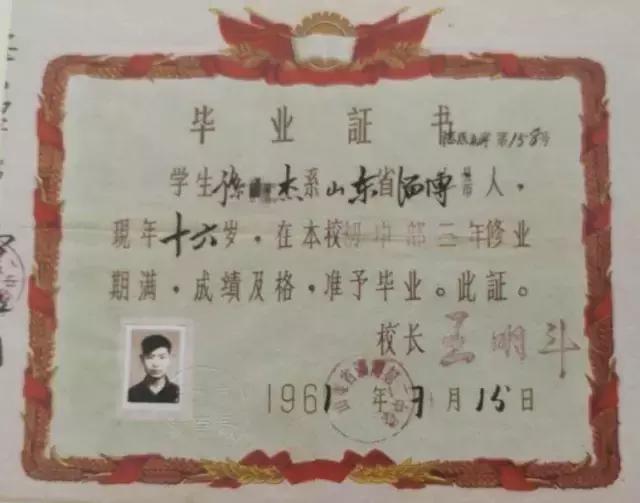 毕业証书
第158号
学生徐杰系山东省淄博市人,
現年十六岁,在本校初中部三年修业
期满,成績及格,准予毕业。此証。
校长 王明斗
1961年7月15日